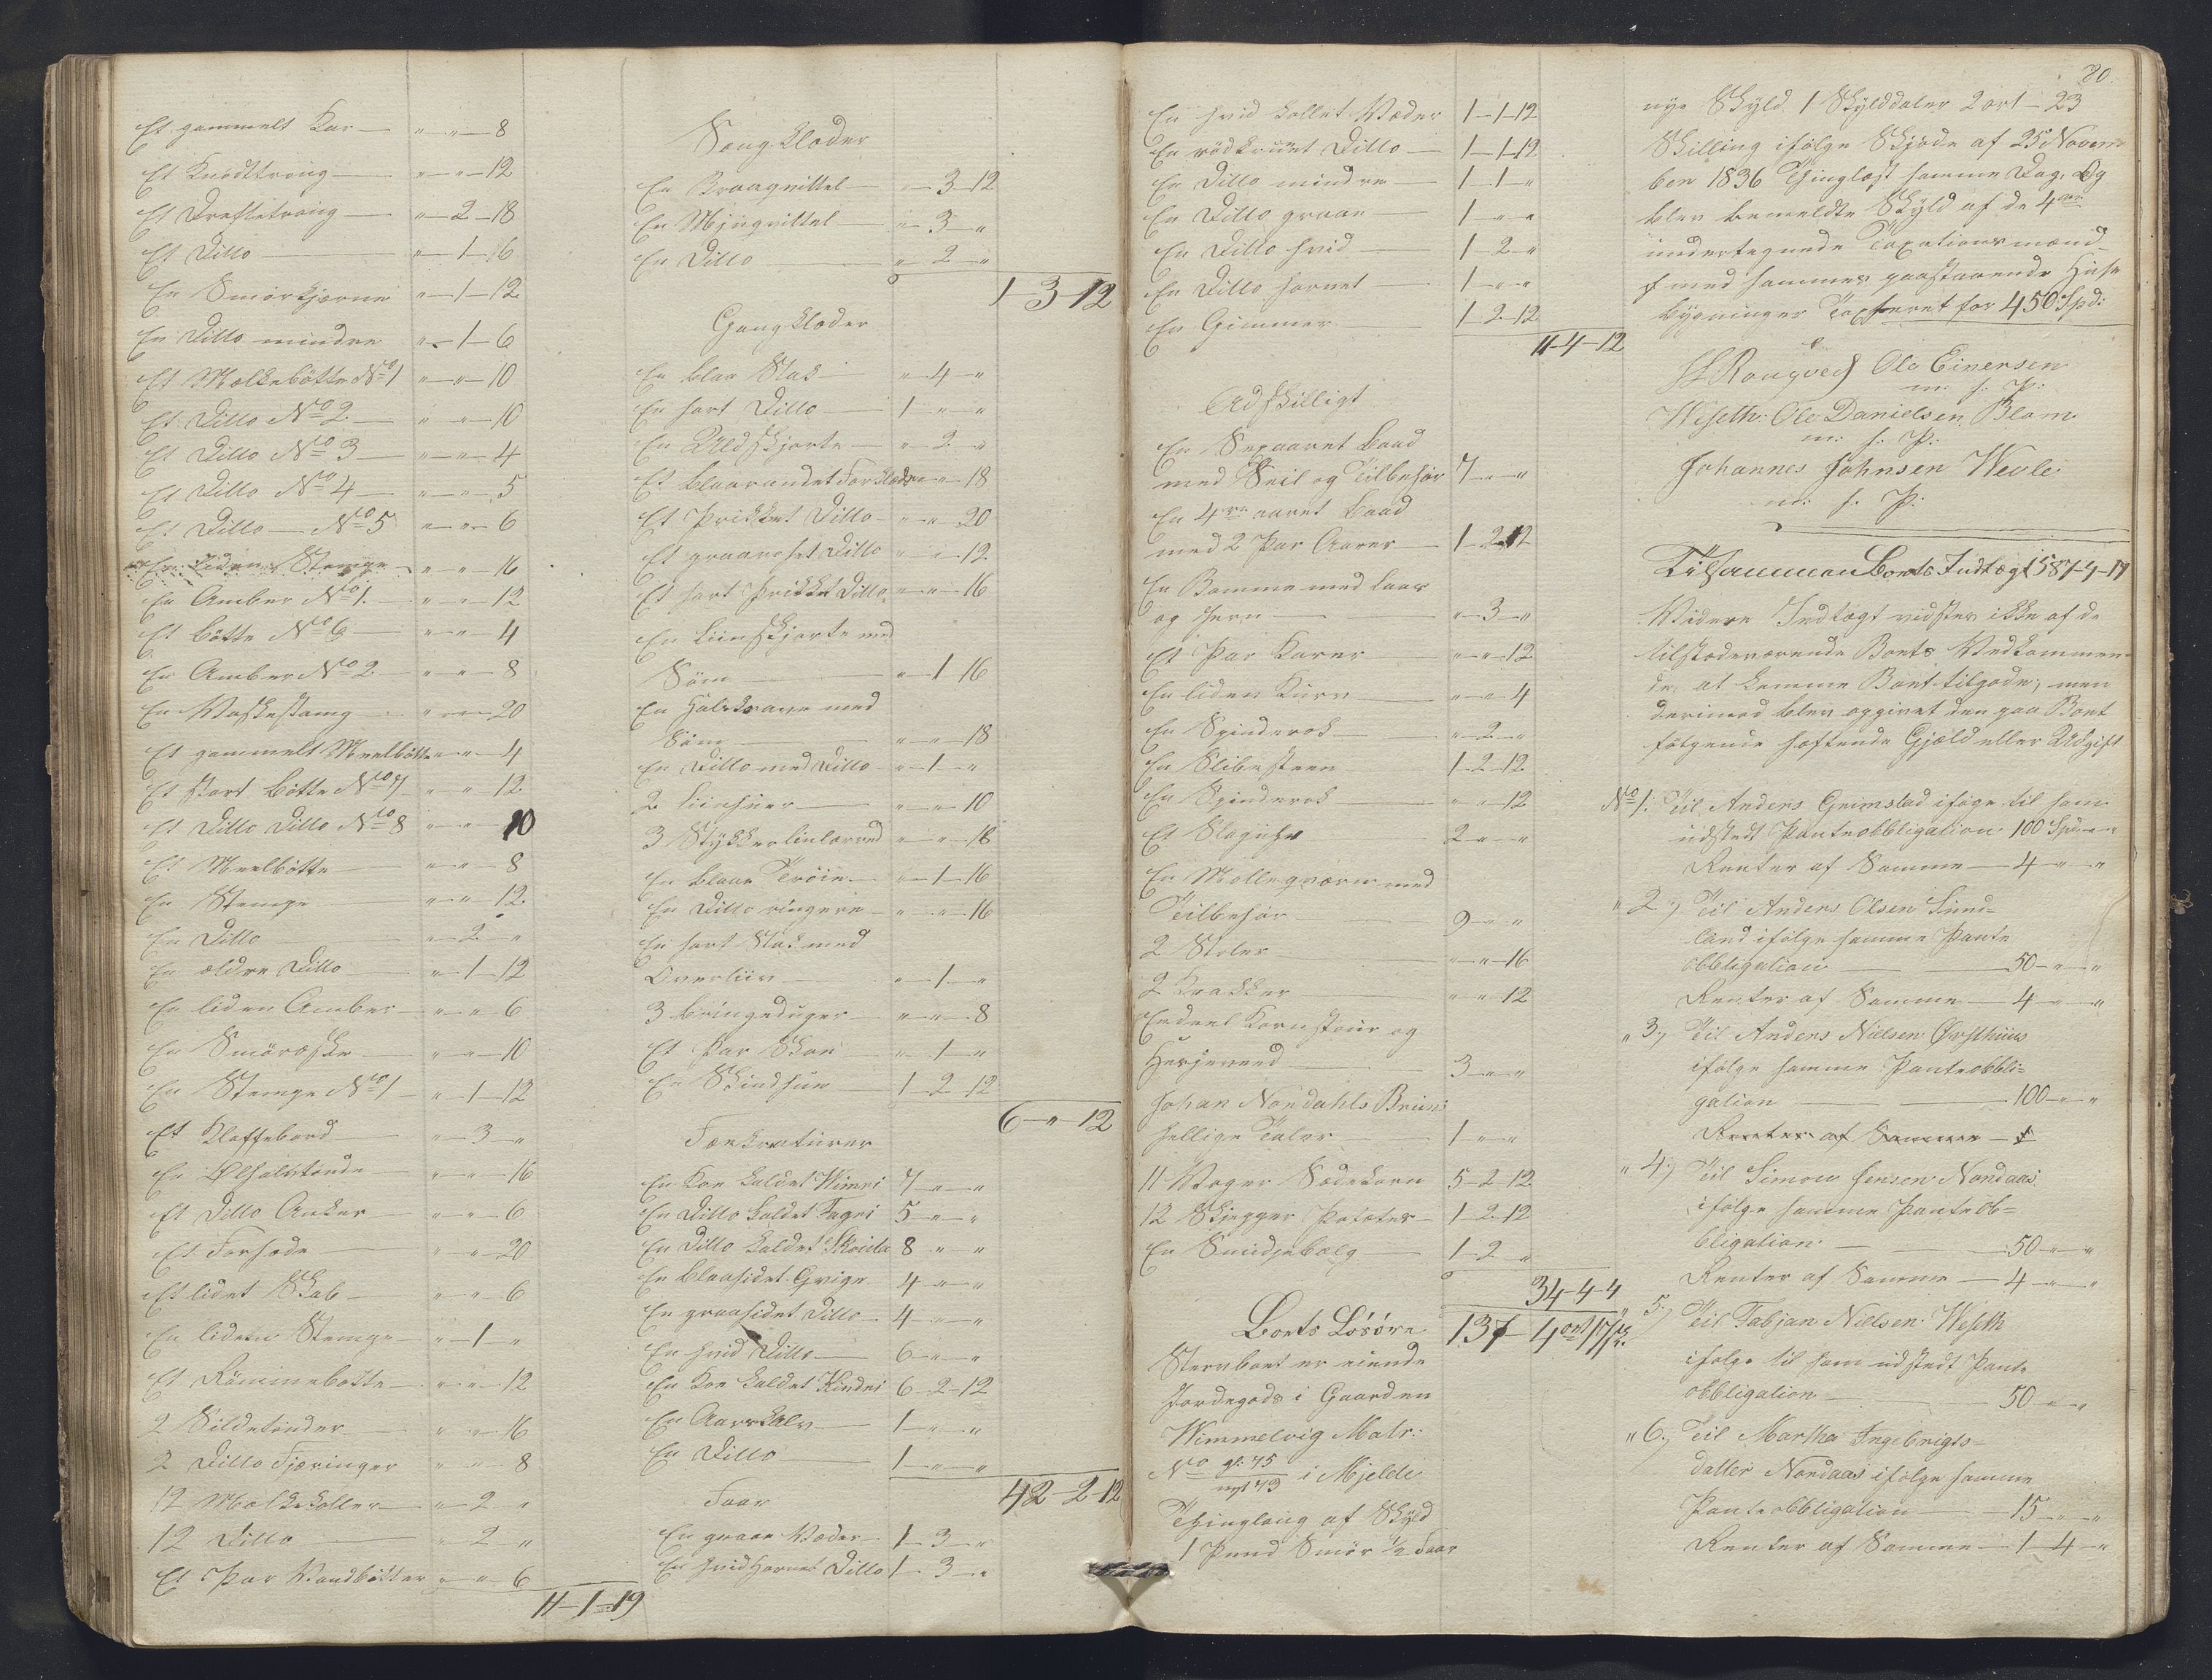 Et gammelt Kar — " — " — 8
Et Knodttroug — " — " — 12
Et Dreftetroug — " — 2 — 18
Et Ditto — " — 1 — 16
En Smørkjærne " — 1 — 12
En Ditto mindre " — 1 — 6
Et Melkebøtte No 1 " — " — 10
Et Ditto No 2 — " — " — 10
Et Ditto No 3 — " — " — 4
Et Ditto No 4 — " — " — 5
Et Ditto — No 5 " — " — 6
En liden Stampe " — " — 16
En Amber No 1. — " — " — 12
Et Bøtte No 6 — " — " — 4
En Amber No 2 — " — " — 8
En Vaskestamp — " — " — 20
Et gammelt Meelbøtte " — " — 4
Et stort Bøtte No 7 " — " — 12
Et Ditto Ditto No 8 " — " — 10
Et Meelbøtte — " — " — 8
En Stampe — " — " — 12
En Ditto — " — 2 — "
En ældre Ditto — " — 1 — 12
En liden Amber — " — " — 6
En Smøræske — " — " — 10
En Stampe No 1 — " — 1 — 12
Et Klaffebord — " — 3 — "
En Ølhalvtønde — " — " — 16
Et Ditto Anker — " — " — 6
Et Forhøde — " — " — 20
Et lidet Skab — " — " — 6
En liden Stampe — " — 1 — "
Et Rømmebøtte — " — " — 12
2 Sildetønder — " — " — 16
2 Ditto Fjæringer " — " — 8
12 Melkekoller — " — 2 — "
12 Ditto — " — 2 — "
Et Par Vandbøtter " — " — 6
11 — 1 — 19
Sengklæder
En Braagvittel — " — 3 — 12
En Mjugvittel — " — 3 — "
En Ditto — " — 2 — "
1 — 3 — 12
Gangklæder
En blaa Stak — " — 4 — "
En sort Ditto — 1 — " — "
En Uldskjorte — " — 2 — "
Et blaarandet Forklæde " — " — 18
Et Prikket Ditto — " — " — 20
Et Ditto " — " — 12
Et sort Prikket Ditto " — " — 16
En Liinskjorte med
Søm — " — 1 — 16
En Halskrave med
Søm — " — " — 18
En Ditto med Ditto — " — 1 — "
2 Liinhuer — " — " — 10
3 Stykker linlærred " — " — 16
En blaae Trøie — " — 1 — 16
En Ditto ringere — " — " — 16
En sort Stak med
Overliv — " — 1 — "
3 Bringeduger — " — " — 8
Et Par Skoe — " — 1 — "
En Skindhue — 1 — 2 — 12
6 — " — 12
Fækreaturer
En Koe kaldet Wimei 7 — " — "
En Ditto kaldet Fagri 5 — " — "
En Ditto kaldet Skouta 8 — " — "
En blaasidet Qvige 4 — " — "
En graasidet Ditto — 4 — " — "
En hvid Ditto — 6 — " — "
En Koe kaldet Kindei 6 — 2 — 12
En Aarskalv — 1 — " — "
En Ditto — 1 — " — "
42 — 2 — 12
Faar
En graae Væder 1 — 3 — "
En hvid Hornet Ditto 1 — 3 — "
En hvid kollet Væder 1 — 1 — 12
En rød Ditto — 1 — 1 — 12
En Ditto mindre — 1 — 1 — "
En Ditto graae — 1 — " — "
En Ditto hvid — 1 — 2 — "
En Ditto hornet — 1 — " — "
En Gimmer — 1 — 2 — 12
11 — 4 — 12
Adskilligt
En Sexaaret Baad
med Seil og Tilbehør 7 — " — "
En 4re aaret Baad
med 2 Par Aarer — 1 — 2 — 12
En Bomme med Laas
og Jern — " — 3 — "
Et Par Karer — " — " — 12
En liden Kurv — " — " — 4
En Spinderok — " — 2 — "
En Slibesteen — 1 — 2 — 12
En Spinderok — " — " — 12
Et Slaguhr — 2 — " — "
En Mølleqværn med
Tilbehør — 9 — " — "
2 Stoler — " — " — 16
2 Krakker — " — " — 12
Endeel Kornstøur og
Hesjeveed — 3 — " — "
Johan Nordahls Bruns
hellige Taler — 1 — " — "
11 Voger Sædekorn 5 — 2 — 12
12 Skjepper Poteter 1 — 2 — 12
En Smidjebælg — 1 — 2 — "
34 — 4 — 4
Boets Løsøre 137 — 4 ort 17 s.
Stervboet er eiende
Jordegods i Gaarden
Wimmelvig Matr:
No gl: 75 / nyt 73 i Mjelde
Thinglaug af Skyld
1 Pund Smør 1/2 Faar
80.
nye Skyld 1 Skylddaler 2 ort — 23
Skilling ifølge Skjøde af 25 Novem
ber 1836 Thinglæst samme Dag. Og
blev bemeldte Skyld af de 4re
undertegnede Taxationsmænd
med sammes paastaaende Huse
bygninger Taxeret for 450 Spd:
Ole Einersen
m: f: P:
Weseth: Ole Danielsen Blom
m: f: P:
Johannes Johnsen Wevle
m: f: P:
Tilsammen Boets Indtægt 587-4-17
Videre Indtægt vidstes ikke af de
tilstedeværende Boets Vedkommen
de at komme Boet tilgode; men
derimod blev opgivet den paa Boet
følgende heftende Gjæld eller Udgift
No 1: Til Anders Grimstad ifølge til ham
udstedt Panteobligation 100 Spd " — "
Renter af Samme — 4 — " — "
" 2:, Til Anders Olsen Sund-
land ifølge samme Pante
obligation — 50 — " — "
Renter af Samme — 4 — " — "
" 3:, Til Anders Nielsen Øvsthuus
ifølge samme Panteobli=
gation — 100 — " — "
Renter af Samme —
" 4:, Til Simon Jensen Nordaas
ifølge samme Panteob=
ligation — 50 — " — "
Renter af Samme — 4 — " — "
" 5:, Til Fabjan Nielsen Weseth
ifølge til ham udstedt Pante
obligation — 50 — " — "
" 6:, Til Martha Ingebrigts=
datter Nordaas ifølge samme
Panteobligation — 15 — " — "
Renter af Samme — 1 — 4 — "